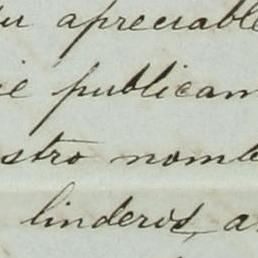 su apreciable
ie publican
stro nomb
linderos, a